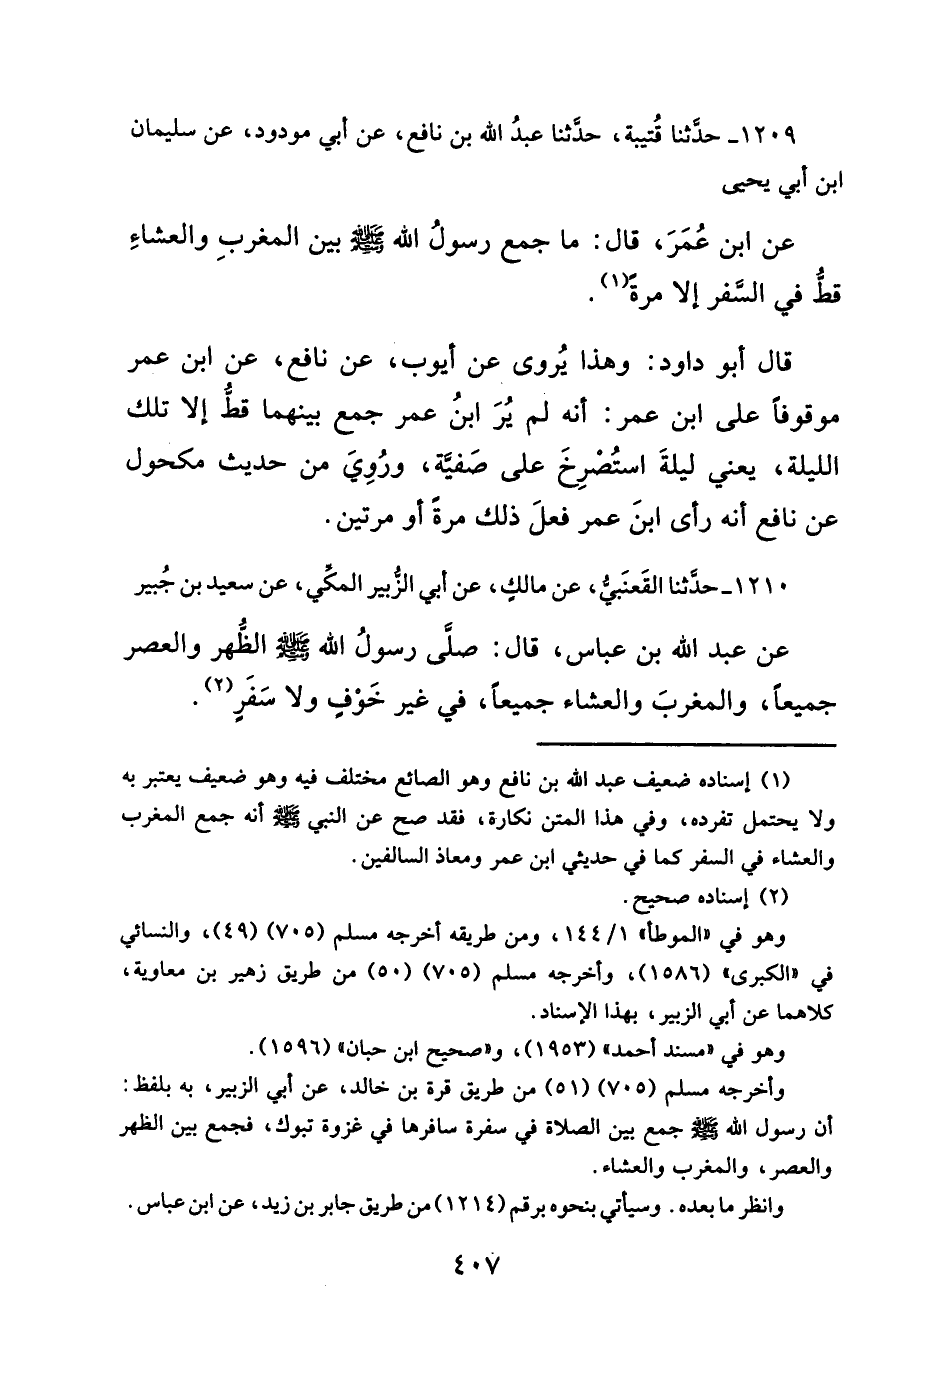 ١٢٠٩ـ حدَّثنا قُتيبة، حدَّثنا عبدُ الله بن نافع، عن أبي مودود، عن سليمان
ابن أبي يحيى
عن ابن عُمَرَ، قال: ما جمع رسولُ الله ﷺ بين المغربِ والعشاءِ
قطُّ في السَّفر إلا مرةً(١).
قال أبو داود: وهذا يُروى عن أيوب، عن نافع، عن ابن عمر
موقوفاً على ابن عمر: أنه لم يُرَ ابنُ عمر جمع بينهما قطُّ إلا تلك
الليلة، يعني ليلةَ استُصْرِخَ على صَفيَّة، ورُوِيَ من حديث مكحول
عن نافع أنه رأى ابنَ عمر فعلَ ذلك مرةً أو مرتين.
١٢١٠ـ حدَّثنا القَعنَبيُّ، عن مالكٍ، عن أبي الزُّبير المكِّي، عن سعيد بن جُبير
عن عبد الله بن عباس، قال: صلَّى رسولُ الله ﷺ الظُّهر والعصر
جميعاً، والمغربَ والعشاء جميعاً، في غير خَوْفٍ ولا سَفَرٍ(٢).
(١) إسناده ضعيف عبد الله بن نافع وهو الصائغ مختلف فيه وهو ضعيف يعتبر به
ولا يحتمل تفرده، وفي هذا المتن نكارة، فقد صح عن النبي ﷺ أنه جمع المغرب
والعشاء في السفر كما في حديثي ابن عمر ومعاذ السالفين.
(٢) إسناده صحيح.
وهو في «الموطأ» ١/١٤٤، ومن طريقه أخرجه مسلم (٧٠٥) (٤٩)، والنسائي
في «الكبرى» (١٥٨٦)، وأخرجه مسلم (٧٠٥) (٥٠) من طريق زهير بن معاوية،
كلاهما عن أبي الزبير، بهذا الإسناد.
وهو في «مسند أحمد» (١٩٥٣)، و«صحيح ابن حبان» (١٥٩٦).
وأخرجه مسلم (٧٠٥) (٥١) من طريق قرة بن خالد، عن أبي الزبير، به بلفظ:
أن رسول الله ﷺ جمع بين الصلاة في سفرة سافرها في غزوة تبوك، فجمع بين الظهر
والعصر، والمغرب والعشاء.
وانظر ما بعده. وسيأتي بنحوه برقم (١٢١٤) من طريق جابر بن زيد، عن ابن عباس.
٤٠٧